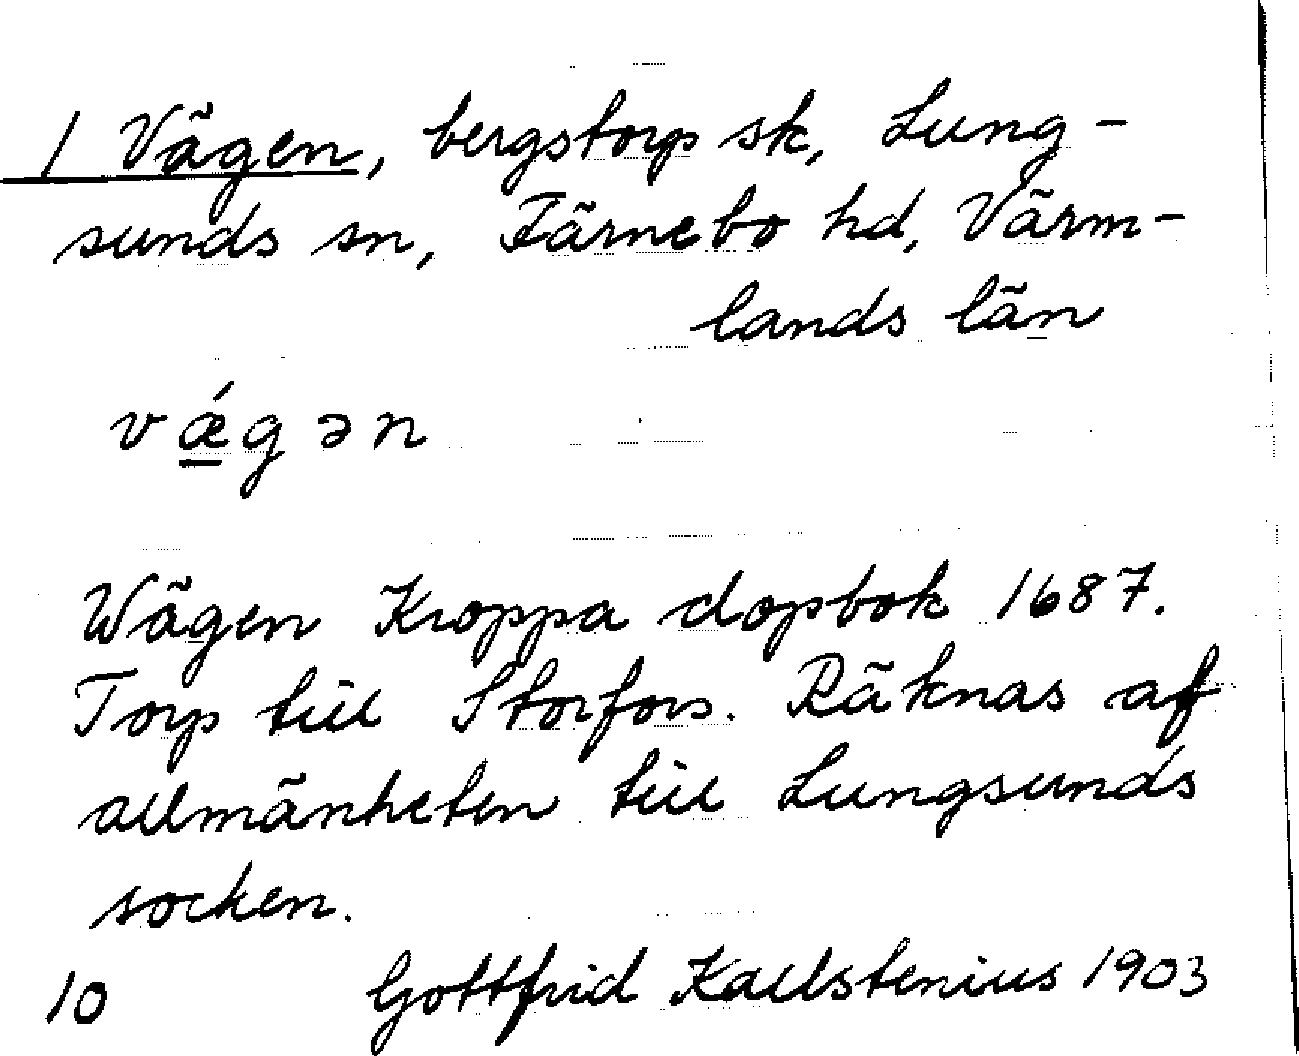 1 Vägen, bergstorp sk, Lung-
sunds sn, Färnebo hd, Värm-
lands län
vǽ̱gən
Wägen Kroppa dopbok 1687.
Torp till Storfors. Räknas af
allmänheten till Lungsunds
socken.
10 Gottfrid Kallstenius 1903